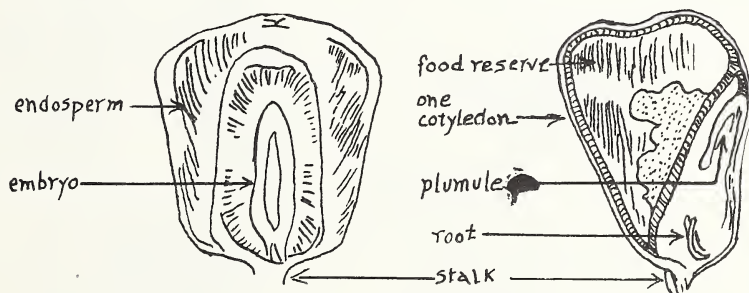 endosperm
embryo
food reserve
one
cotyledon
plumule
root
stalk